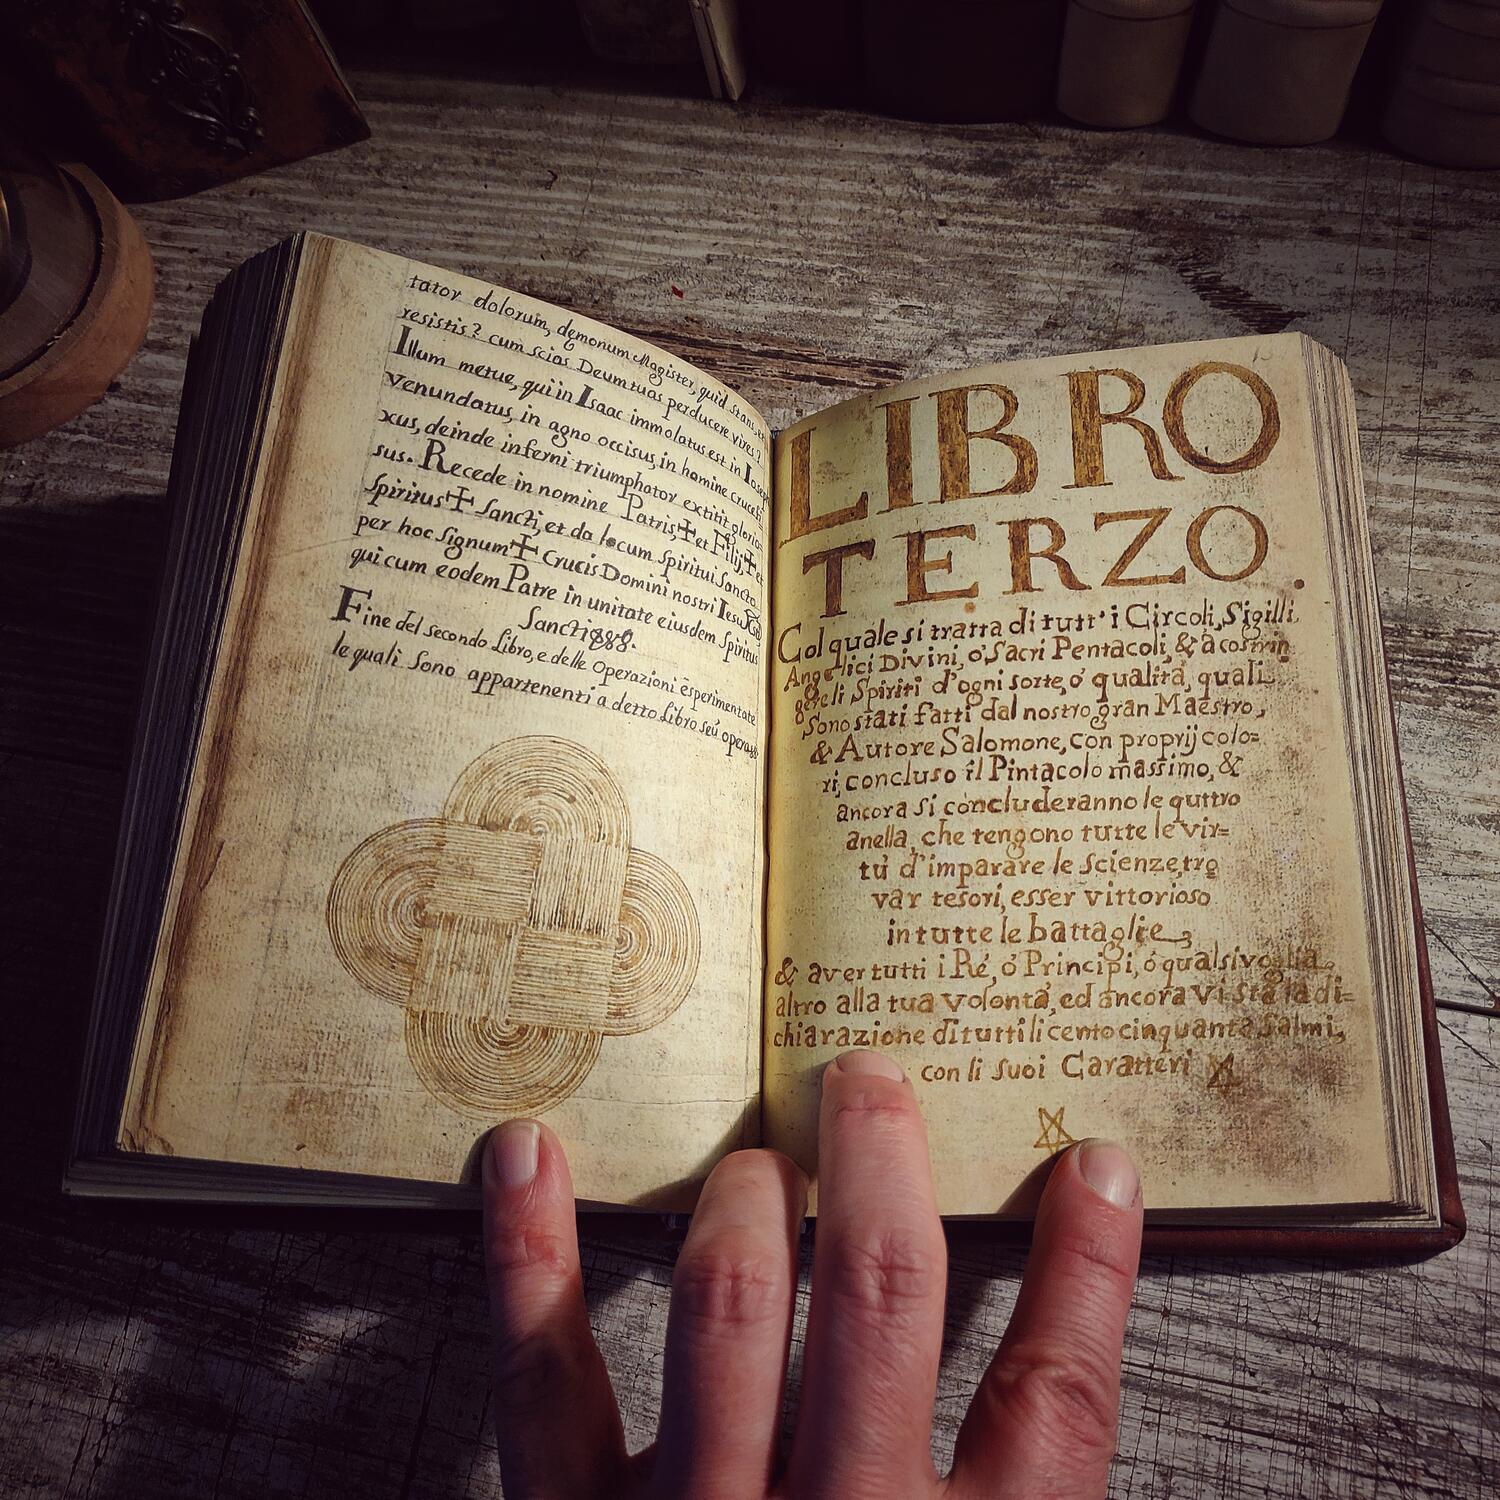 tator dolorum, demonum Magister, quid stans, et
resistis? cum scias Deum tuas perducere vires?
Illum metue, qui in Isaac immolatus est in Ioseph
venundatus, in agno occisus, in homine crucefi=
xus, deinde inferni triumphator extitit glorio=
sus. Recede in nomine Patris ✠ et Filij, ✠ et
Spiritus ✠ Sancti, et da locum Spiritui Sancto
per hoc signum ✠ Crucis Domini nostri Iesu
qui cum eodem Patre in unitate eiusdem Spiritus
Sancti
Fine del secondo Libro, e delle Operazioni esperimentate
le quali sono appartenenti a detto Libro seù
LIBRO
TERZO.
Col quale si tratta di tutt'i Circoli, Sigilli,
Angelici Divini, ò Sacri Pentacoli, & à costrin
gere li Spiriti d'ogni sorte, ò qualità, quali
sono stati fatti dal nostro gran Maestro,
& Autore Salomone, con proprij colo=
ri, concluso il Pintacolo massimo, &
ancora si concluderanno le quttro
anella, che tengono tutte le vir=
tù d'imparare le scienze, tro
var tesori, esser vittorioso
in tutte le battaglie,
& aver tutti i Ré, ò Principi, ò qualsivoglia
altro alla tua volontà, ed ancora vi sta la di=
chiarazione di tutti li cento cinquanta Salmi,
con li suoi Caratteri